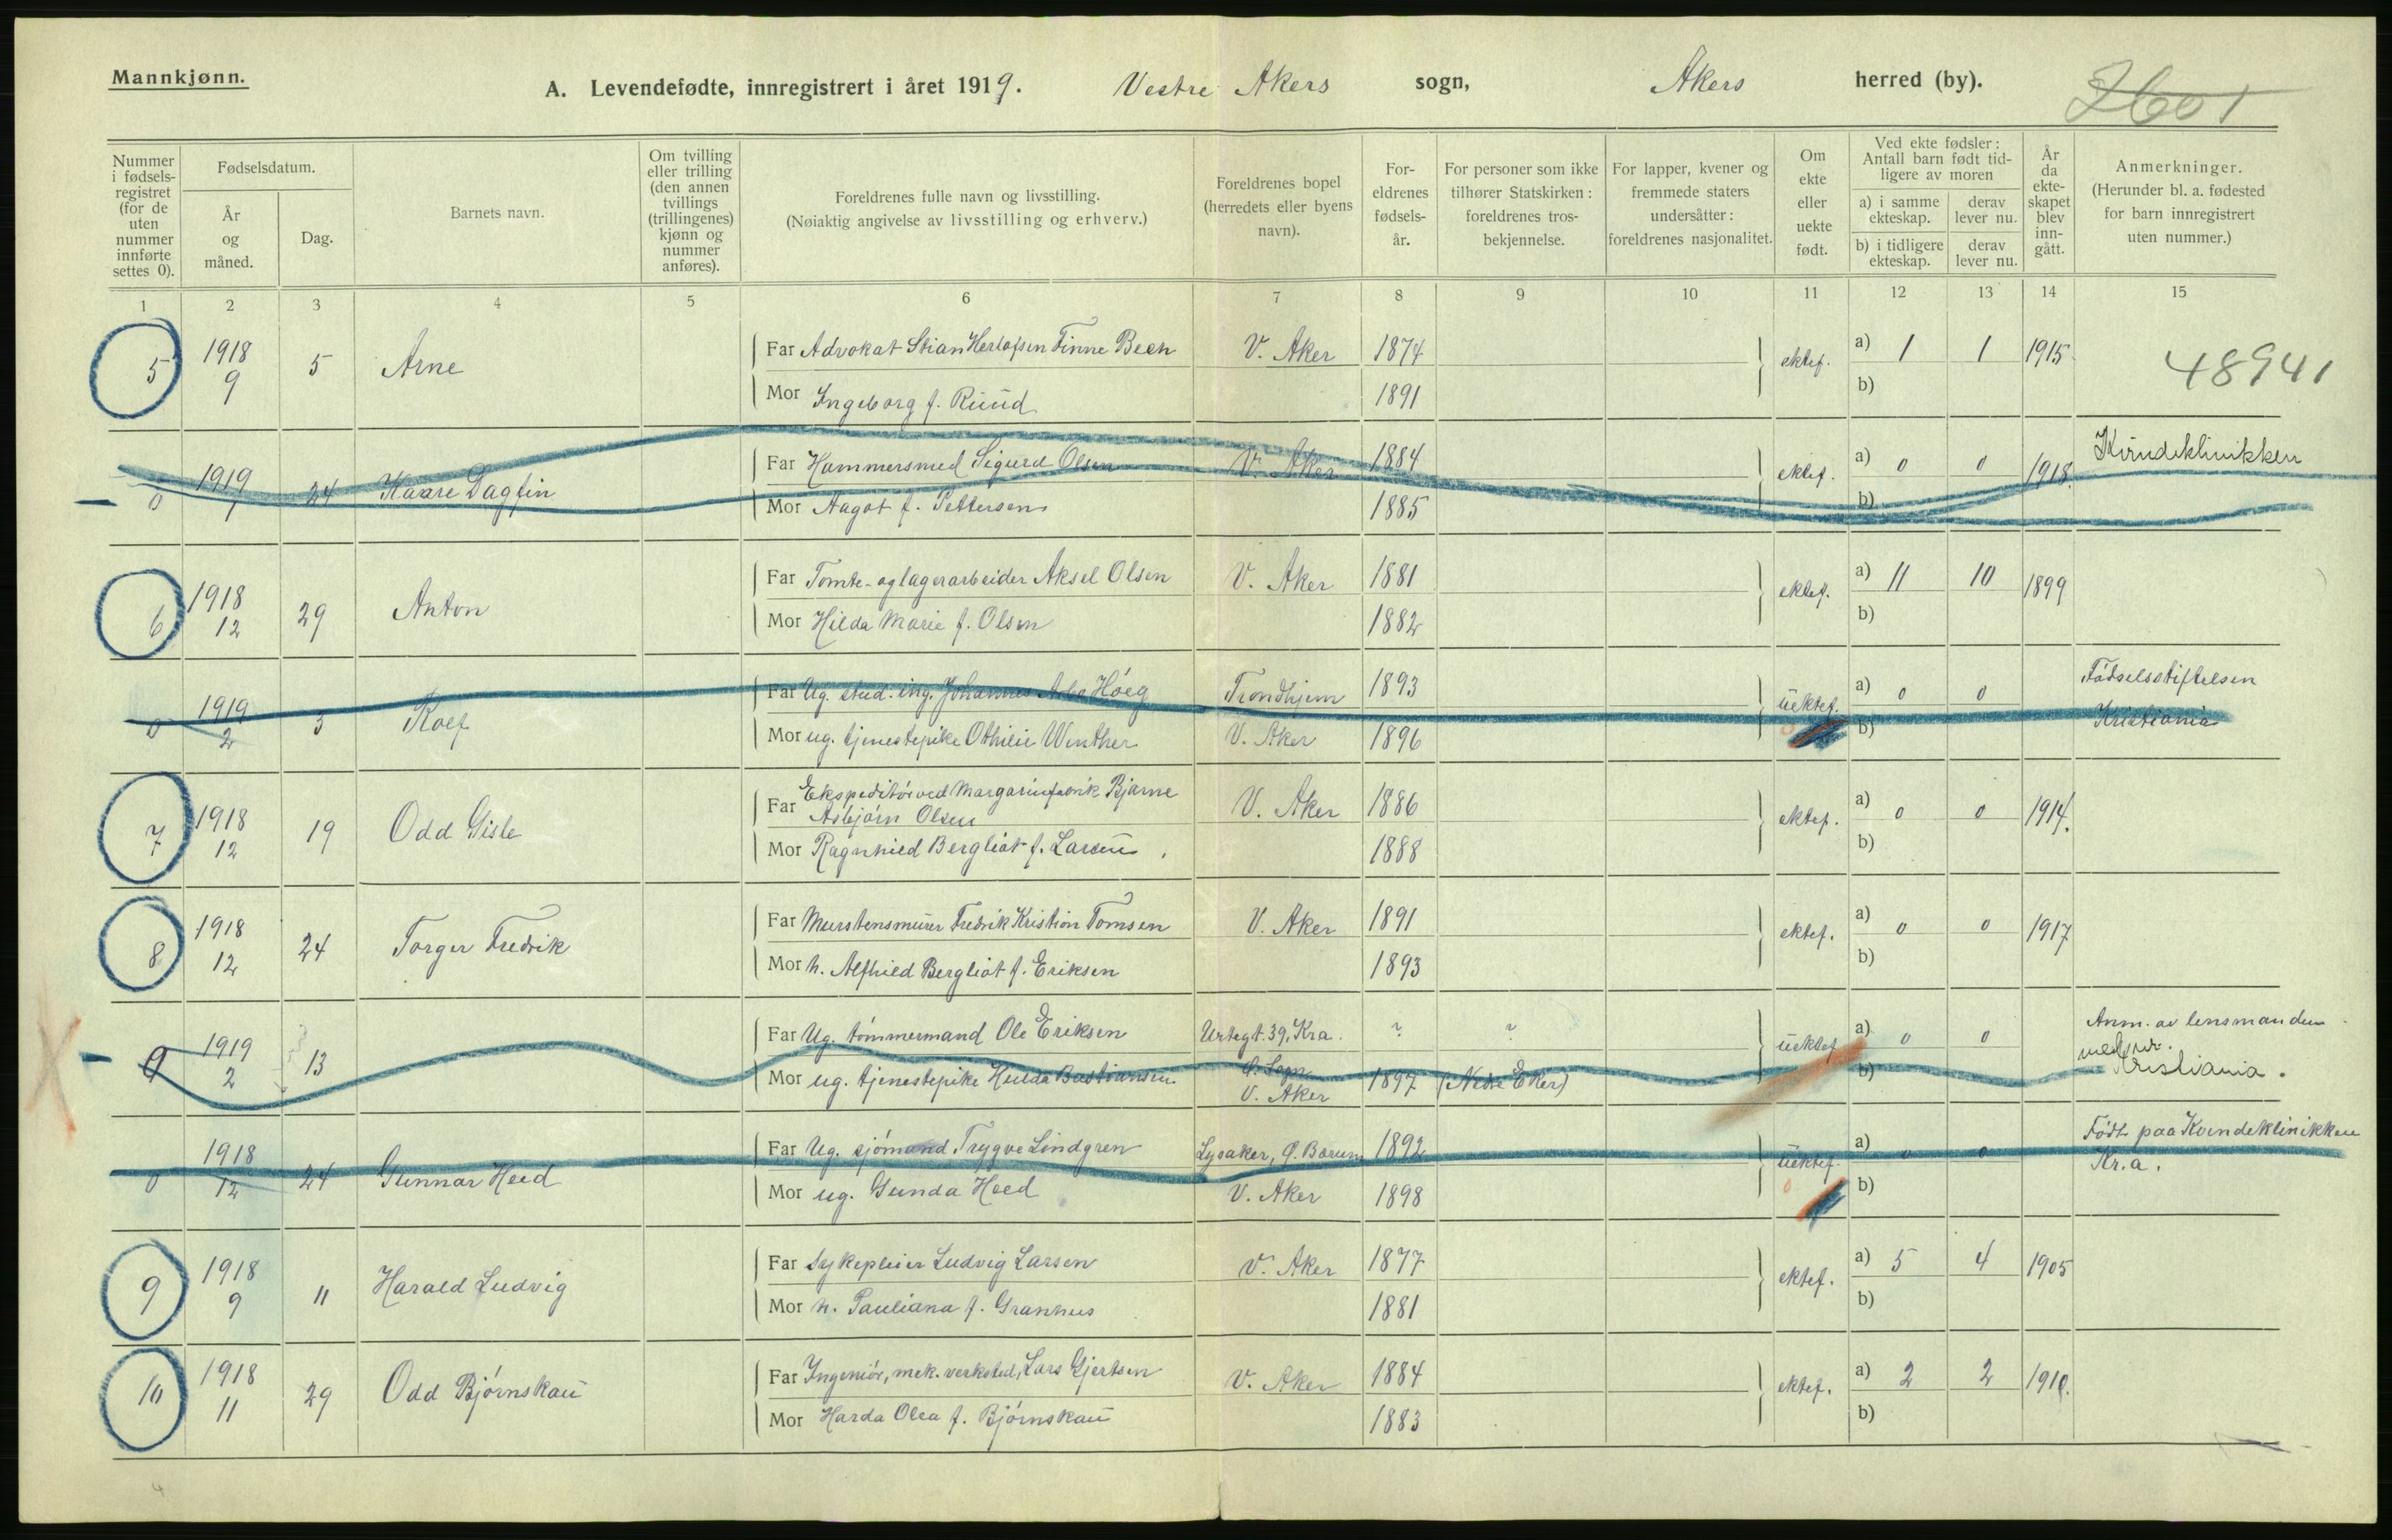 Mannkjønn.
A. Levendefødte, innregistrert i året 1919. Vestre Akers sogn, Akers herred (by).
2601
Nummer i fødselsregistret (for de uten nummer innførte settes 0).
Fødselsdatum.
År og måned.
Dag.
Barnets navn.
Om tvilling eller trilling (den annen tvillings (trillingenes) kjønn og nummer anføres).
Foreldrenes fulle navn og livsstilling.
(Nøiaktig angivelse av livsstilling og erhverv.)
Foreldrenes bopel (herredets eller byens navn).
Foreldrenes fødselsår.
For personer som ikke tilhører Statskirken: foreldrenes trosbekjennelse.
For lapper, kvener og fremmede staters undersåtter: foreldrenes nasjonalitet.
Om ekte eller uekte født.
Ved ekte fødsler: Antall barn født tidligere av moren
a) i samme ekteskap. derav lever nu.
b) i tidligere ekteskap. derav lever nu.
År da ekteskapet blev inngått.
Anmerkninger.
(Herunder bl. a. fødested for barn innregistrert uten nummer.)
1 2 3 4 5 6 7 8 9 10 11 12 13 14 15
5 1918 9 5 Arne Far Advokat Stian Herlofsen Finne Bech V. Aker 1874 ektef. a) 1 1 1915 48941
Mor Ingeborg f. Ruud 1891 b)
0 1919 1 24 Kaare Dagfin Far Hammersmed Sigurd Olsen V. Aker 1884 ektef. a) 0 0 1918. Kvindeklinikken
Mor Aagot f. Pettersen 1885 b)
6 1918 12 29 Anton Far Tomte- og lagerarbeider Aksel Olsen V. Aker 1881 ektef. a) 11 10 1899
Mor Hilda Marie f. Olsen 1882 b)
0 1919 2 3 Rolf Far Ug. stud. ing. Johannes Arbo Höeg Trondhjem 1893 uektef. a) 0 0 Födselsstiftelsen
Mor ug. tjenestepike Othilie Winther V. Aker 1896 b) Kristiania
7 1918 12 19 Odd Gisle Far Ekspeditör ved Margarinfabrik Bjarne
Asbjörn Olsen V. Aker 1886 ektef. a) 0 0 1914.
Mor Ragnhild Bergliot f. Larsen 1888 b)
8 1918 12 24 Torger Fredrik Far Murstensmurer Fredrik Kristian Tomsen V. Aker 1891 ektef. a) 0 0 1917
Mor h. Alfhild Bergliot f. Eriksen 1893 b)
0 1919 2 13 Far Ug. tömmermand Ole Eriksen Urtegt. 39, Kra. ? ? uektef a) 0 0 Anm. av lensmanden
Mor ug. tjenestepike Hulda Bastiansen Ø. Sogn V. Aker 1897 (Nedre Eker) b) Kristiania.
0 1918 12 24 Gunnar Heed Far Ug. sjömand Trygve Lindgren Lysaker, Ø. Bærum 1892 uektef. a) 0 0 Födt paa Kvindeklinikken
Mor ug. Gunda Heed V. Aker 1898 b) Kr.a.
9 1918 9 11 Harald Ludvig Far Sykepleier Ludvig Larsen V. Aker 1877 ektef. a) 5 4 1905
Mor h. Pauliana f. Granhus 1881 b)
10 1918 11 29 Odd Björnskau Far Ingeniör, mek. verksted, Lars Gjertsen V. Aker 1884 ektef. a) 2 2 1910.
Mor Harda Olea f. Björnskau 1883 b)